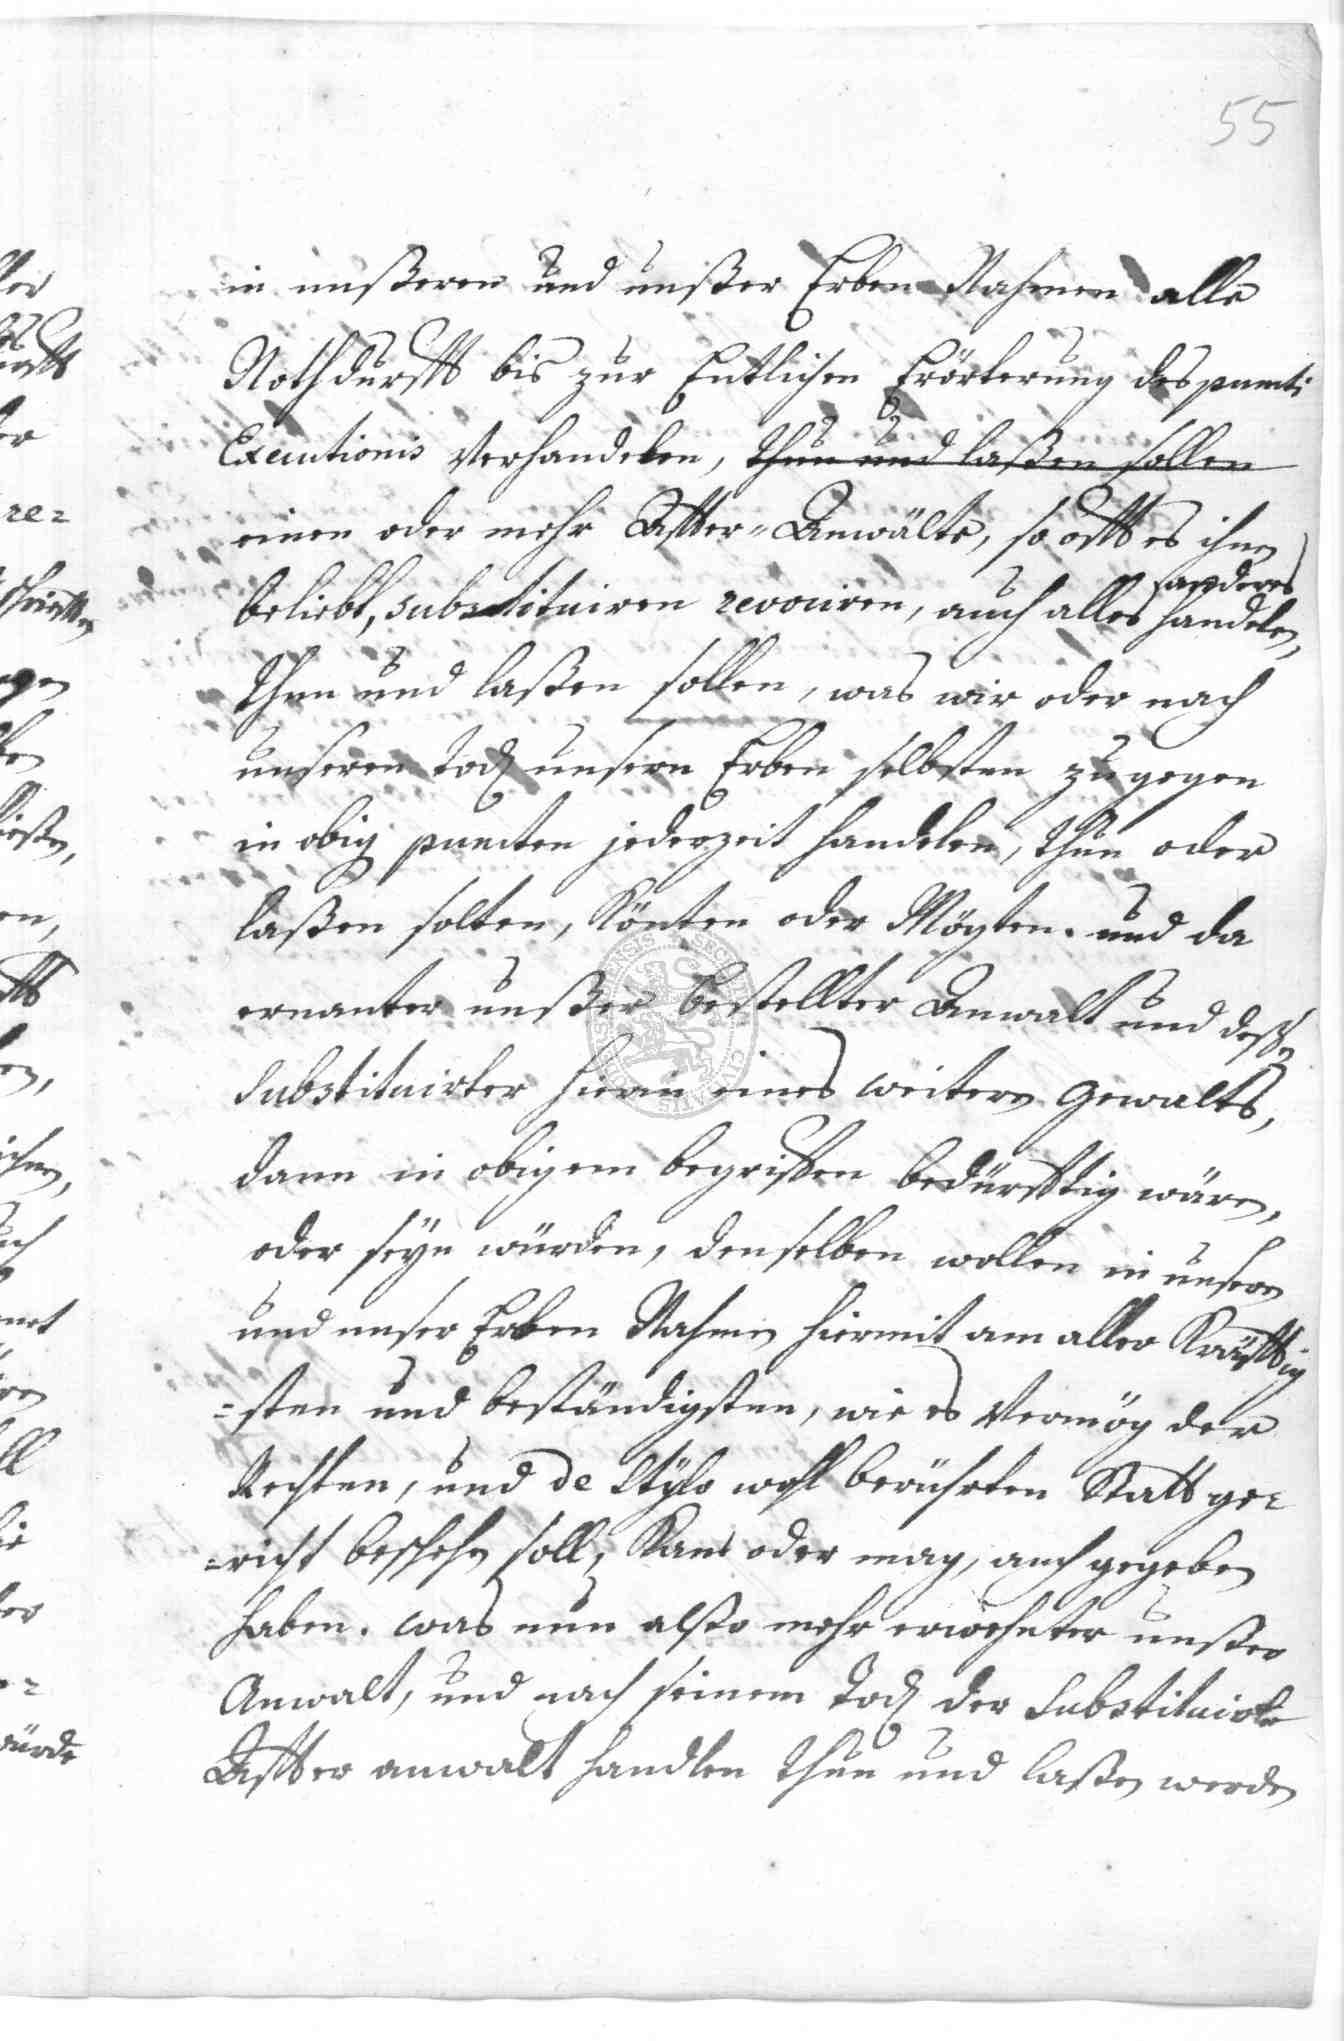 55
in unßeren und unßer Erben Nahmen alle
Nothdurfft bis zur Entlichen Erörterung des puncti
Executionis Verhandelen, thun und laßen sollen
einen oder mehr Affter-Anwälte, so offt es ihm
anderes
beliebt, substituiren revociren, auch alles handelen,
thun und laßen sollen, was wir oder nach
unseren Tod unsern Erben selbsten zugegen
in obig puncten jederzeit handelen, thun oder
laßen solten, könten oder Mögten. und da
ernanter unßer bestellter Anwalt und deßen
Substituirter hierin eines weitern Gewalts,
dann in obigem begriffen bedürfftig wären,
oder seyn würden, denselben wollen in unsern
und unser Erben Nahmen hiermit am aller Kräfftig
=sten und beständigsten, wie es Vermög der
Rechten, und de Stylo wohl berührten Statt ge=
=richt beschehn soll, kan oder mag, auch gegeben
haben. was nun alßo mehr erwehnter unßer
Anwalt, und nach seinem Tod der Substituirte
Affter anwalt handlen thun und laßen werden